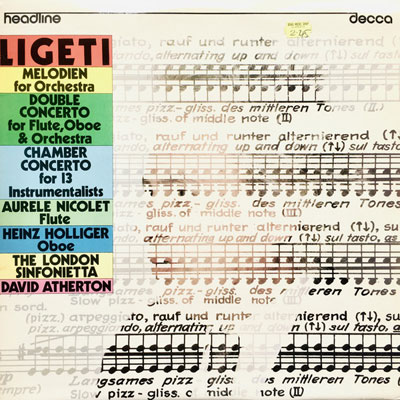 headline
decca
2.45
LIGETI
MELODIEN
for Orchestra
DOUBLE
CONCERTO
for Flute, Oboe
& Orchestra
CHAMBER
CONCERTO
for 13
Instrumentalists
AURELE NICOLET
Flute
HEINZ HOLLIGER
Oboe
THE LONDON
SINFONIETTA
DAVID ATHERTON
rauf und runter alternierend (↑↓)
alternating up and down (↑↓) sul tasto
pizz-gliss. des mittleren Tones (II.)
pizz-gliss. of middle note (II)
rauf und runter alternierend (↑↓)
alternating up and down (↑↓) sul tasto,
ames pizz-gliss. des mittleren Tones
pizz-gliss. of middle note (II)
rauf und runter alternierend (↑↓)
alternating up and down (↑↓) sul tasto, as
ames pizz-gliss. des mittleren Tones
Slow pizz-gliss. of middle note (II)
en sord.
(pizz.) arpeggiato, rauf und runter alternierend (↑↓)
arpeggiando, alternating up and down (↑↓) sul tasto, a
Langsames pizz gliss. des mittleren Tones
Slow pizz-gliss. of middle note (II)